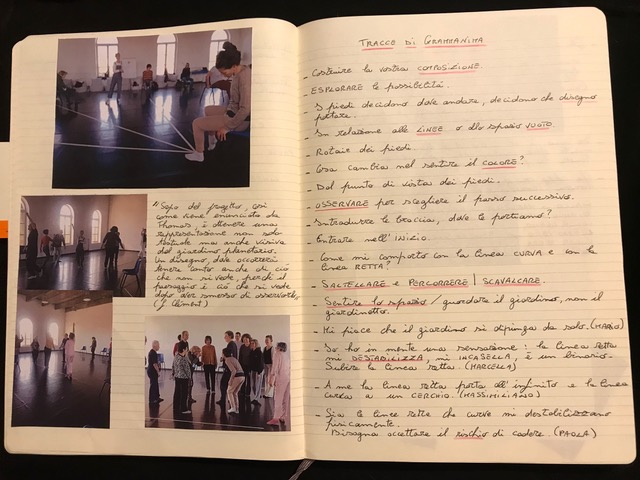 "Scopo del progetto, così
come viene enunciato da
Thomas, è ottenere una
rappresentazione non solo
testuale ma anche visiva
del giardino planetario.
Un disegno, dove occorrerà
tenere conto anche di ciò
che non si vede, perché il
paesaggio è ciò che si vede
dopo aver smesso di osservarlo"
(G. Clément)
TRACCE DI GRAMMANIMA
- Costruire la vostra COMPOSIZIONE.
- ESPLORARE le possibilità.
- I piedi decidono dove andare, decidono che disegno
portare.
- In relazione alle LINEE o allo spazio VUOTO.
- Rotaie dei piedi.
- Cosa cambia nel sentire il COLORE?
- Dal punto di vista dei piedi.
- OSSERVARE per scegliere il passo successivo.
- Introdurre le braccia, dove le portiamo?
- Entrare nell'INIZIO.
- Come mi comporto con la linea CURVA e con la
linea RETTA?
- SALTELLARE e PERCORRERE / SCAVALCARE.
- Sentire lo spazio / guardare il giardino, non il
giardinetto.
- Mi piace che il giardino si dipinga da solo. (MARIO)
- Se ho in mente una sensazione: la linea retta
mi DESTABILIZZA, mi INCASELLA, è un binario.
Subire la linea retta. (MARCELLA)
- A me la linea retta porta all'infinito e la linea
curva a un CERCHIO. (MASSIMILIANO)
- Sia le linee rette che curve mi destabilizzano
fisicamente.
Bisogna accettare il rischio di cadere. (PAOLA)